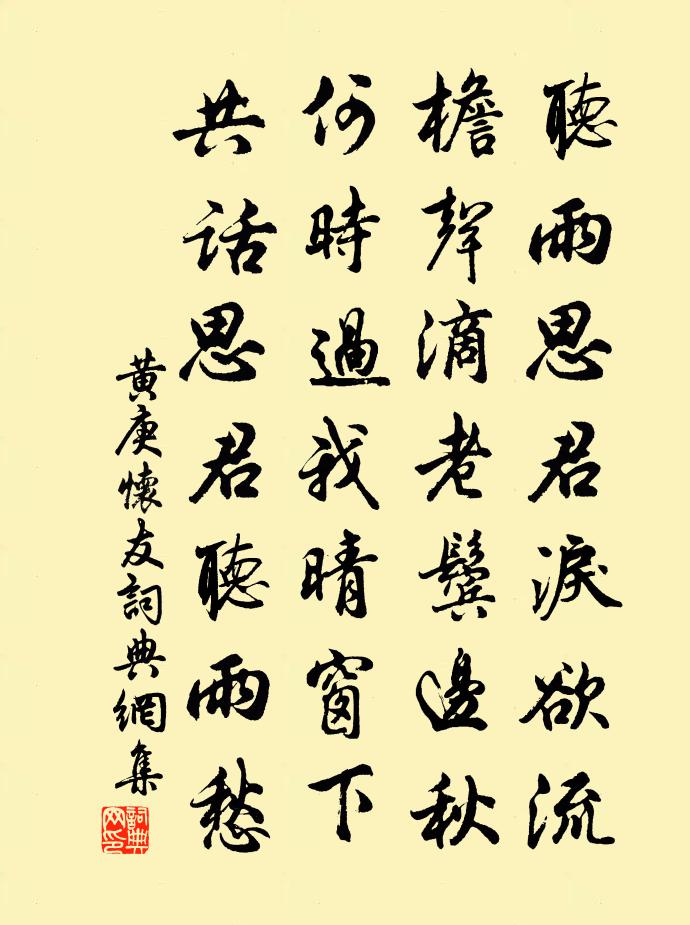 聽雨思君淚欲流
檐聲滴老鬢邊秋
何時過我晴窗下
共话思君聽雨愁
黄庚懷友詞典網集
詞典网印